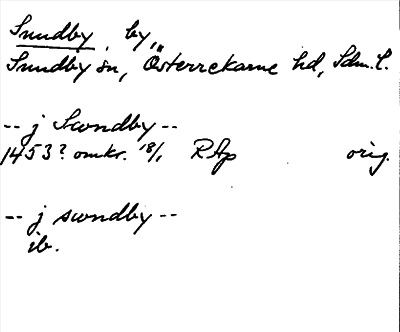 Sundby, by,,
Sundby sn, Österrekarne hd, Sdm. l.
-- j Swndby --
1453? omkr. 18/1 RAp orig.
-- j swndby --
ib.